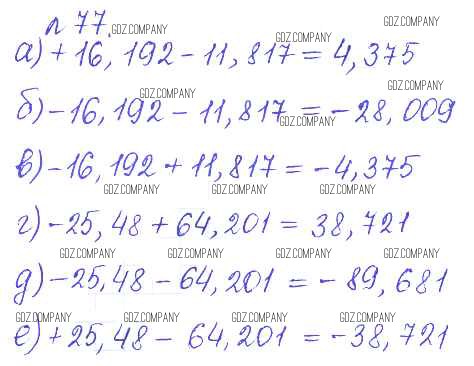 n 77.
GDZ.COMPANY GDZ.COMPANY GDZ.COMPANY
а) + 16, 192 - 11, 817 = 4, 375
GDZ.COMPANY GDZ.COMPANY GDZ.COMPANY
б) - 16, 192 - 11, 817 = - 28, 009
в) - 16, 192 + 11, 817 = - 4, 375
GDZ.COMPANY GDZ.COMPANY GDZ.COMPANY
г) - 25, 48 + 64, 201 = 38, 721
GDZ.COMPANY GDZ.COMPANY GDZ.COMPANY GDZ.COMPANY
д) - 25, 48 - 64, 201 = - 89, 681
GDZ.COMPANY GDZ.COMPANY GDZ.COMPANY GDZ.COMPANY
е) + 25, 48 - 64, 201 = - 38, 721